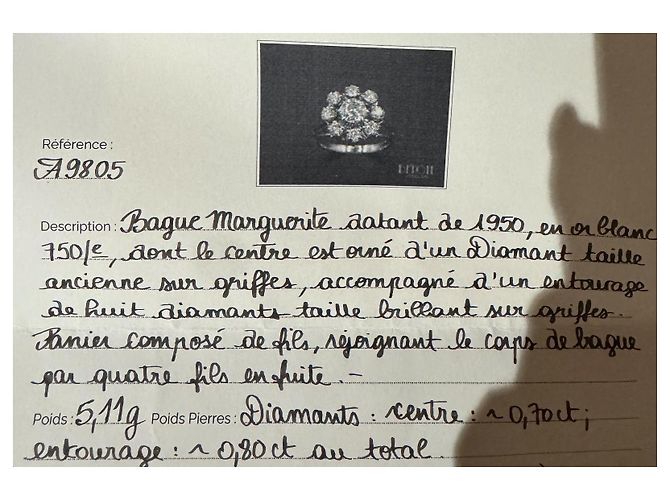 Référence :
A9805
Description : Bague Marguerite datant de 1950, en or blanc
750/e, dont le centre est orné d'un Diamant taille
ancienne sur griffes, accompagné d'un entourage
de huit diamants taille brillant sur griffes.
Panier composé de fils, rejoignant le corps de bague
par quatre fils en fuite. -
Poids : 5,11g Poids Pierres : Diamants : centre : ~ 0,70ct ;
entourage : ~ 0,80ct au total.